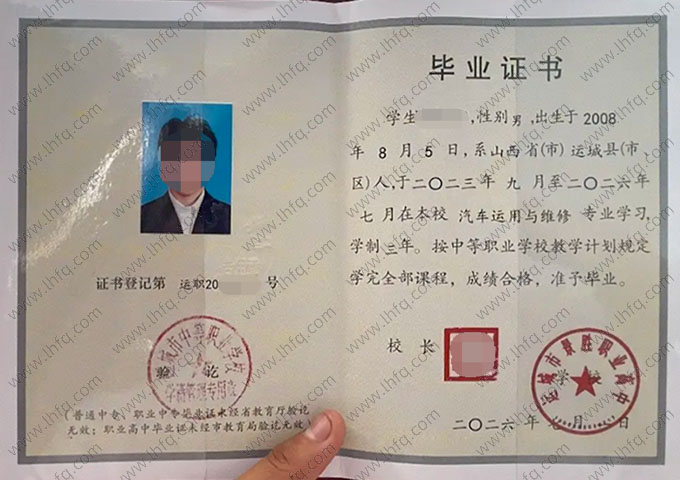 毕业证书
学生 ,性别男,出生于2008
年8月5日,系山西省(市)运城县(市、
区)人,于二〇二三年九月至二〇二六年
七月在本校 汽车运用与维修 专业学习,
学制三年。按中等职业学校教学计划规定
学完全部课程,成绩合格,准予毕业。
校长
学校
运城市景胜职业高中
二〇二六年七月 日
证书登记第 运职20 号
运城市中等职业学校
学籍管理专用章
验讫
(普通中专、职业中专毕业证未经省教育厅验讫
无效;职业高中毕业证未经市教育局验讫无效)
www.lhfq.com